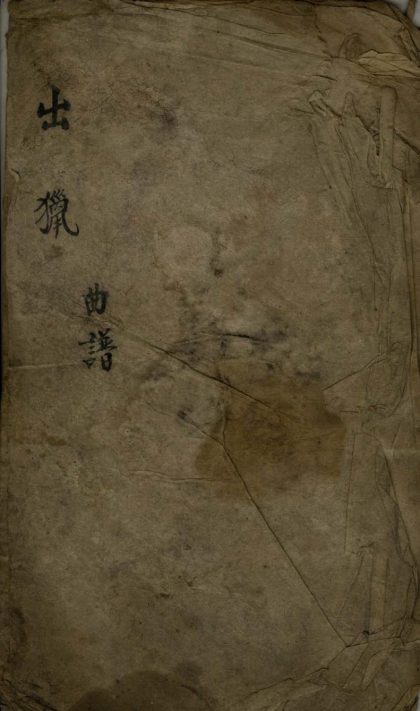 出獵
曲譜